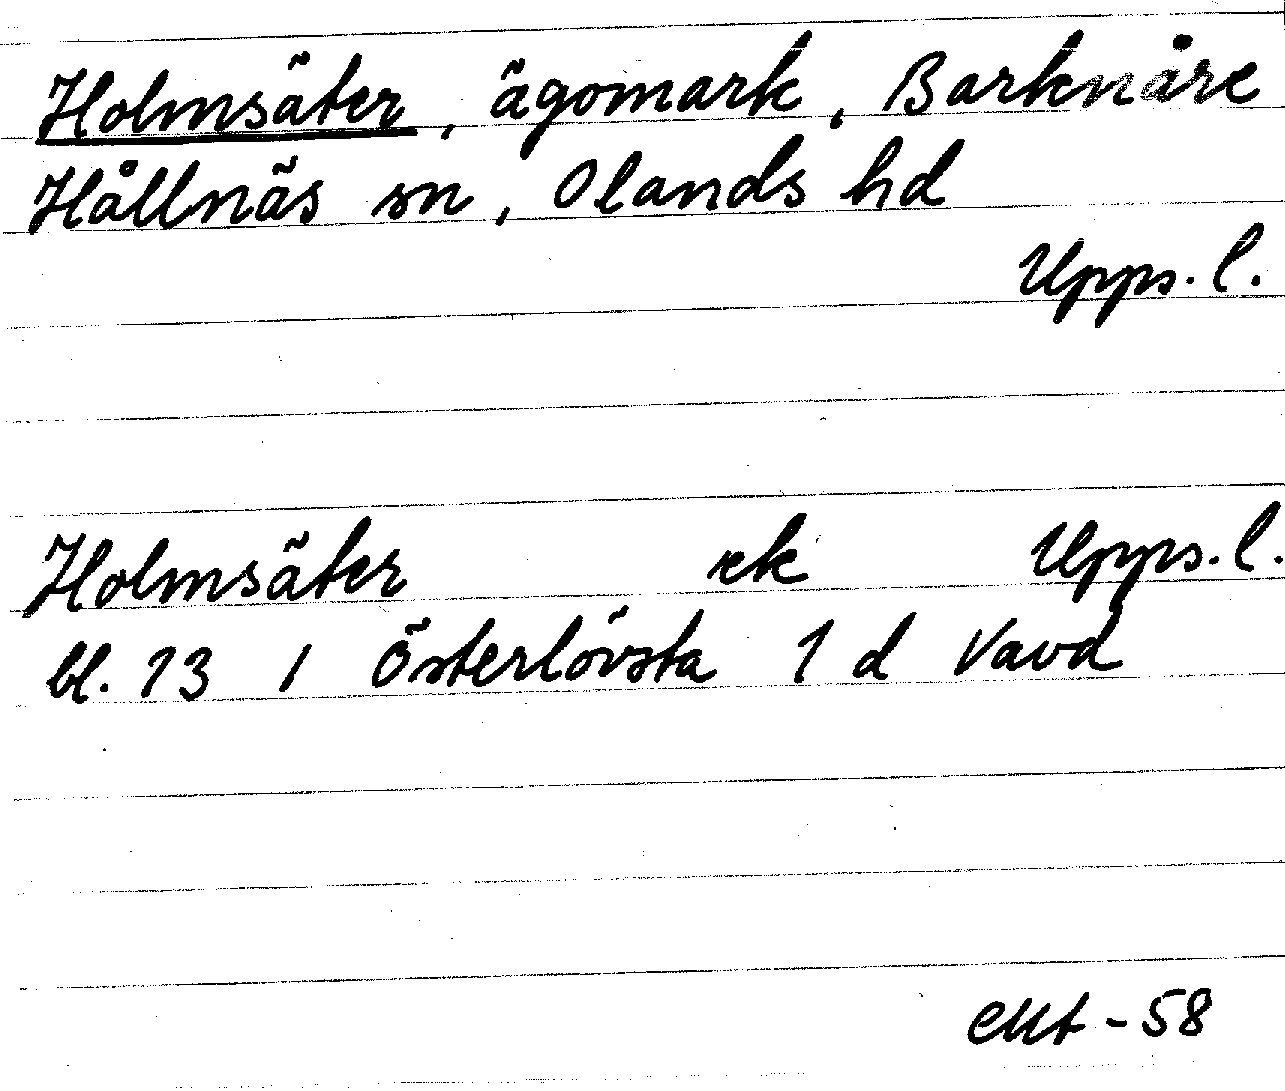 Holmsäter, ägomark, Barknåre
Hållnäs sn, Olands hd
Upps. l.
Holmsäter ek Upps. l.
bl. 13 I Österlövsta 1 d Vavd